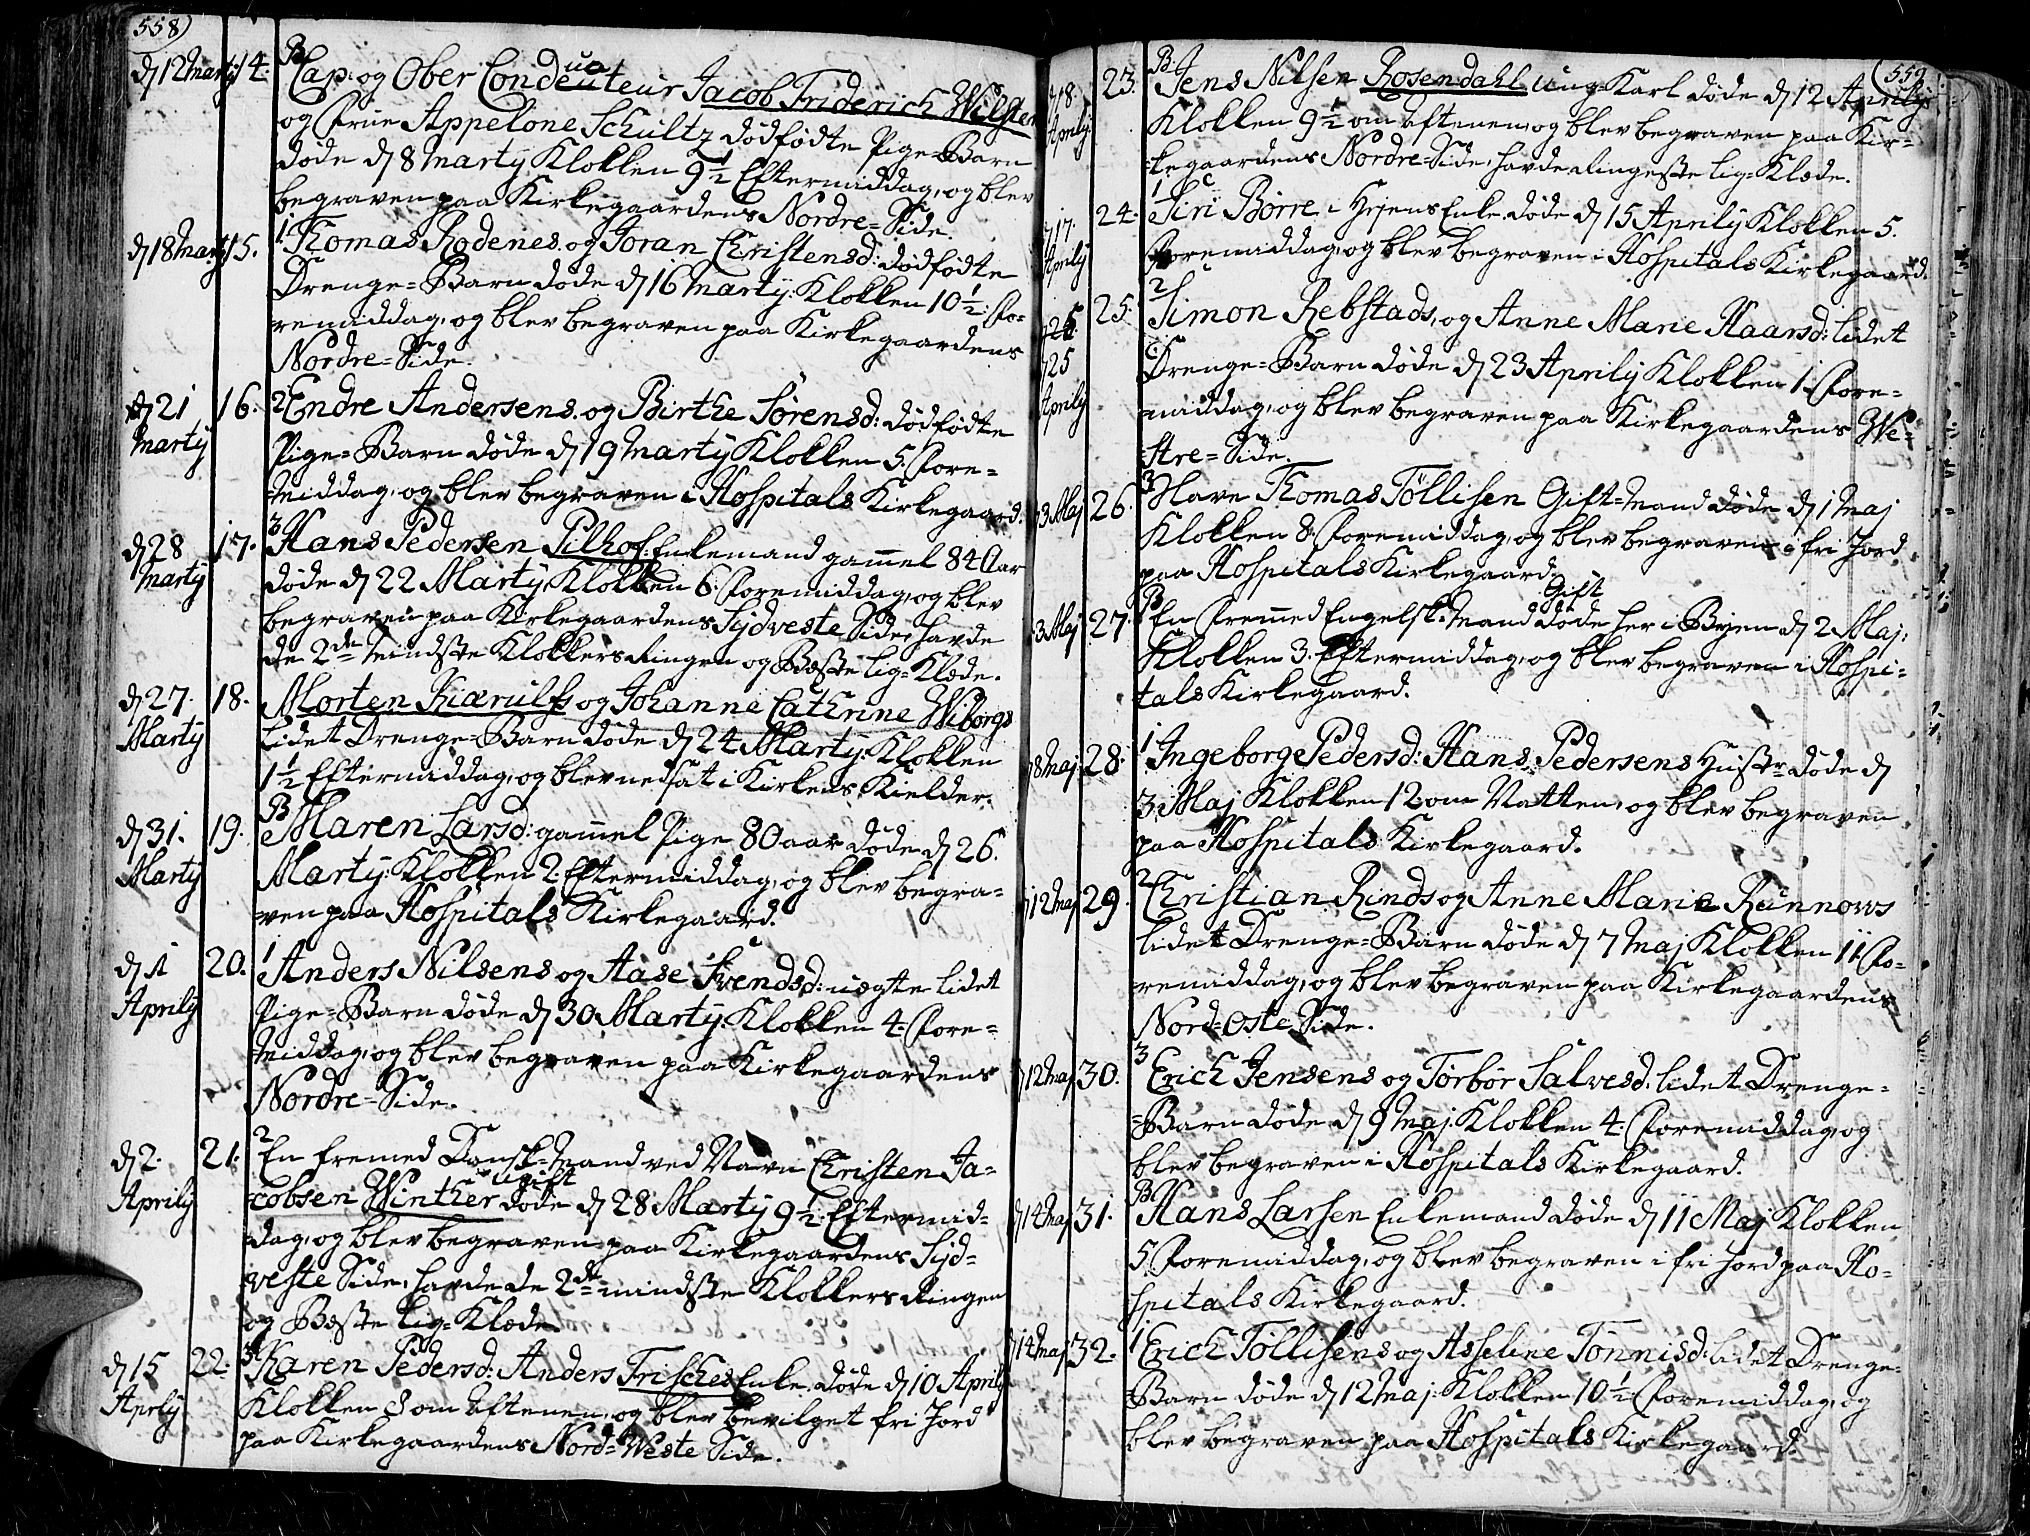 558
d 12 Marty 14. B Cap: og Ober Conducteur Jacob Friderich Wilster
og Frue Appelone Schultz dødfødte Pige=Barn
døde d 8 Marty Klokken 9½ Eftermiddag, og blev
begraven paa Kirkegaardens Nordre=Side.
d 18 Marty 15. 1 Thomas Rodenes og Joran Christensd: dødfødte
Drenge=Barn døde d 16 Marty: Klokken 10½ Fo=
remiddag, og blev begraven paa Kirkegaardens
Nordre=Side
d 21 Marty 16. 2 Endre Andersens og Birthe Sørensd: dødfødte
Pige=Barn døde d 19 Marty Klokken 5. Fore=
middag, og blev begraven i Hospitals Kirkegaard.
d 28 Marty 17. 3 Hans Pedersen Pilhof: Enkemand gam̄el 84 Aar
døde d 22 Marty Klokken 6. Foremiddag, og blev
begraven paa Kirkegaardens Sydveste Side, havde
de 2de mindste Klokkers Ringen og Beste Lig=Klæde.
d 27. Marty 18. Morten Kiærulfs og Johanne Cathrine Wiborgs
lidet Drenge=Barn døde d 24 Marty: Klokken
1½ Eftermiddag, og blev nedsat i Kirkens Kielder.
d 31. Marty 19. B Maren Larsd: gam̄el Pige 80 aar døde d 26.
Marty: Klokken 2. Eftermiddag, og blev begra=
ven paa Hospitals Kirkegaard.
d 1 Aprily 20. 1 Anders Nilsens og Aase Svendsd: uægte lidet
Pige=Barn døde d 30 Marty. Klokken 4. Fore=
middag, og blev begraven paa Kirkegaardens
Nordre=Side.
d 2. Aprily 21. 2 En fremed Dansk=Mand ved Navn Christen Ja=
cobsen Winther ugift døde d 28 Marty 9½ Eftermid=
dag, og blev begraven paa Kirkegaardens Syd=
veste Side, havde de 2de mindste Klokkers Ringen
og Beste Lig=Klæde.
d 15 Aprily 22. 3 Karen Pedersd: Anders Frisches Enke døde d 10 Aprily
Klokken 8 om Aftenen, og blev bevilget fri Jord
paa Kirkegaardens Nord=Weste Side.
559
18. Aprily 23. B Jens Nilsen Rosendahl ung Karl døde d 12 Aprily
Klokken 9½ om Aftenen, og blev begraven paa Kir=
kegaardens Nordre=Side, havde Ringeste Lig=Klæde.
17. Aprily 24. 1 Siri Børre Enke døde d 15 Aprily Klokken 5.
Foremiddag, og blev begraven i Hospitals Kirkegaard.
25 Aprily 25. 2 Simon Rebstads, og Anne Marie Haarsd: lidet
Drenge=Barn døde d 23 Aprily Klokken 1. Fore=
middag, og blev begraven paa Kirkegaardens We=
stre=Side.
3 Maj 26. 3 Have Thomas Töllisen Gift=Mand døde d 1 Maj
Klokken 8. Foremiddag, og blev begraven i fri Jord
paa Hospitals Kirkegaard.
3 Maj 27. B En Frem̄ed Engelsk=Mand Gift døde her i Byen d 2 Maj:
Klokken 3. Eftermiddag, og blev begraven i Hospi=
tals Kirkegaard.
8 Maj 28. 1 Ingeborg Pedersd: Hans Pedersens Hustr: døde d
3 Maj Klokken 12 om Natten, og blev begraven
paa Hospitals Kirkegaard.
12 Maj 29. 2 Christian Rinds og Anne Marie Runnows
lidet Drenge=Barn døde d 7 Maj Klokken 11. Fo=
remiddag, og blev begraven paa Kirkegaardens
Nord=Oste Side.
d 12 Maj 30. 3 Erich Jensens og Torbør Salvesd: lidet Drenge=
=Barn døde d 9 Maj: Klokken 4. Foremiddag, og
blev begraven i Hospitals Kirkegaard.
d 14 Maj 31. B Hans Larsen Enkemand døde d 11 Maj Klokken
5. Foremiddag, og blev begraven i fri Jord paa Ho=
spitals Kirkegaard.
d 14 Maj 32. 1 Erich Töllisens og Asseline Tönnisd: lidet Drenge=
Barn døde d 12 Maj: Klokken 10½ Foremiddag, og
blev begraven paa Hospitals Kirkegaard.